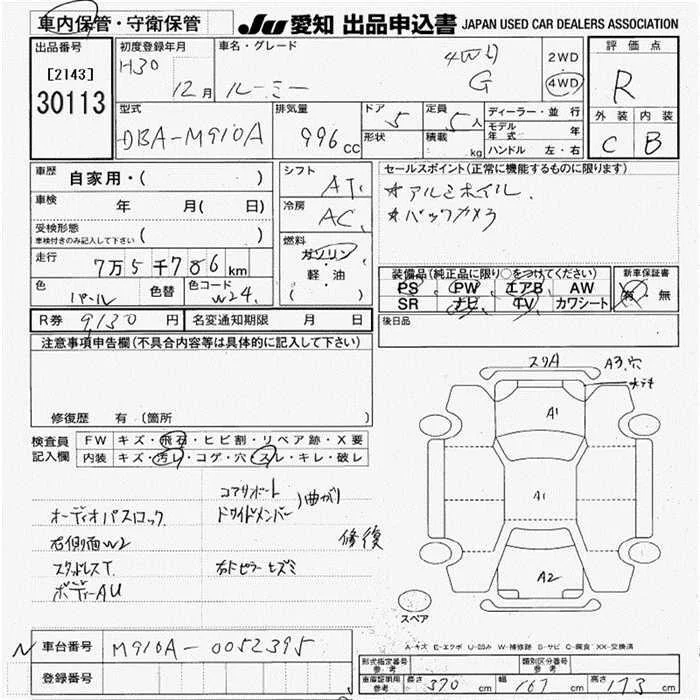 車内保管・守衛保管
JU 愛知 出品申込書 JAPAN USED CAR DEALERS ASSOCIATION
出品番号
[2143]
30113
初度登録年月
H30
12月
車名・グレード
ルーミー
4WD
G
2WD
4WD
評価点
R
外装 内装
C B
型式
DBA-M910A
排気量
996cc
ドア 5
形状
定員 5人
積載 kg
ディーラー・並行
モデル年式 年
ハンドル 左・右
車歴 自家用・( )
車検 年 月( 日)
受検形態
車検付きのみ記入して下さい ( )
走行 7万5千786km
色 パール
色替
色コード W24
シフト AT
冷房 AC
燃料
ガソリン
・
軽油
( )
セールスポイント(正常に機能するものに限ります)
*アルミホイル
*バックカメラ
装備品(純正品に限り○をつけてください)
PS PW エアB AW
SR ナビ TV カワシート
新車保証書
有・無
後日品
R券 9130円
名変通知期限 月 日
注意事項申告欄(不具合内容等は具体的に記入して下さい)
修復歴 有(箇所
検査員記入欄
FW キズ・飛石・ヒビ割・リペア跡・X要
内装 キズ・汚レ・コゲ・穴・スレ・キレ・破レ
コアサポート
ドワイドメンバー
)曲がり
オーディオパスロック
右側面W2
スタッドレスT.
右ドピラーヒズミ
修復
ボディーAU
スリA
A3.穴
A1
A1
A2
スペア
A-キズ E-エクボ U-凹み W-補修跡 S-サビ C-腐食 XX-交換済
N 車台番号 M910A-0052395
登録番号
型式指定番号参考
類別区分番号参考
車庫証明用参考
長さ 370cm
幅 167cm
高さ 173cm